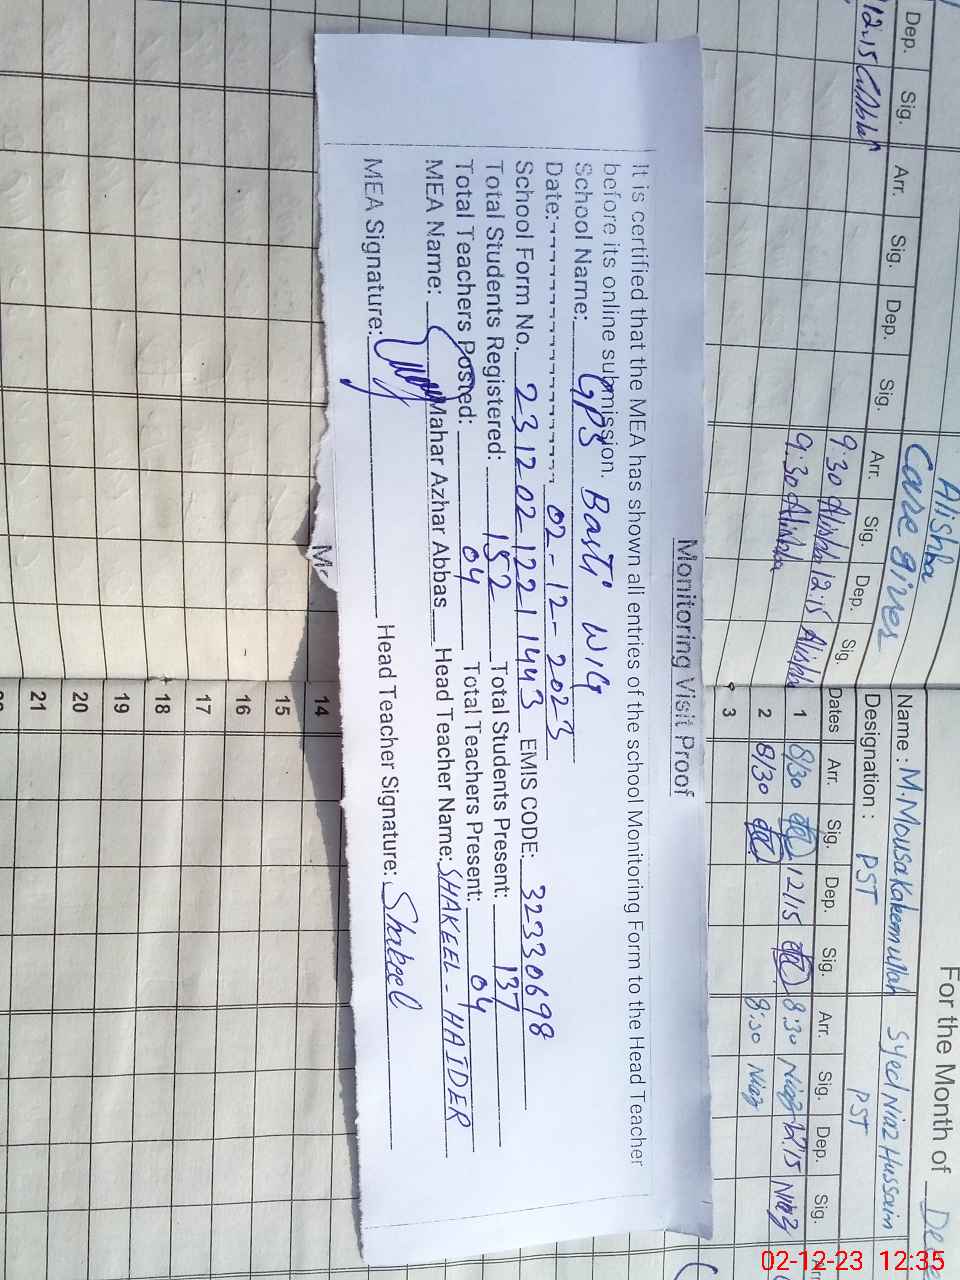 Monitoring Visit Proof
It is certified that the MEA has shown all entries of the school Monitoring Form to the Head Teacher
before its online submission.
School Name: GPS Basti
Date: 02-12-2023
School Form No. 231202 1221 1443 EMIS CODE: 32330698
Total Students Registered: 152 Total Students Present: 137
Total Teachers Posted: 04 Total Teachers Present: 04
MEA Name: Mahar Azhar Abbas Head Teacher Name: SHAKEEL - HAIDER
MEA Signature: Head Teacher Signature: Shakeel
For the Month of
Alishba
Care giver
Name: M.Mousa Syed Niaz Hussain
Designation: PST PST
Dep. Sig. Arr. Sig. Dep. Sig. Arr. Sig. Dep. Sig.
Dates Arr. Sig. Dep. Sig. Arr. Sig. Dep. Sig.
12.15
9:30 Alishba 12:15 Alishba
9:30 Alishba
1 8/30 12/15 8:30 Niaz 12.15 Niaz
2 8/30 8:30 Niaz
3
14
15
16
17
18
19
20
21
02-12-23 12:35